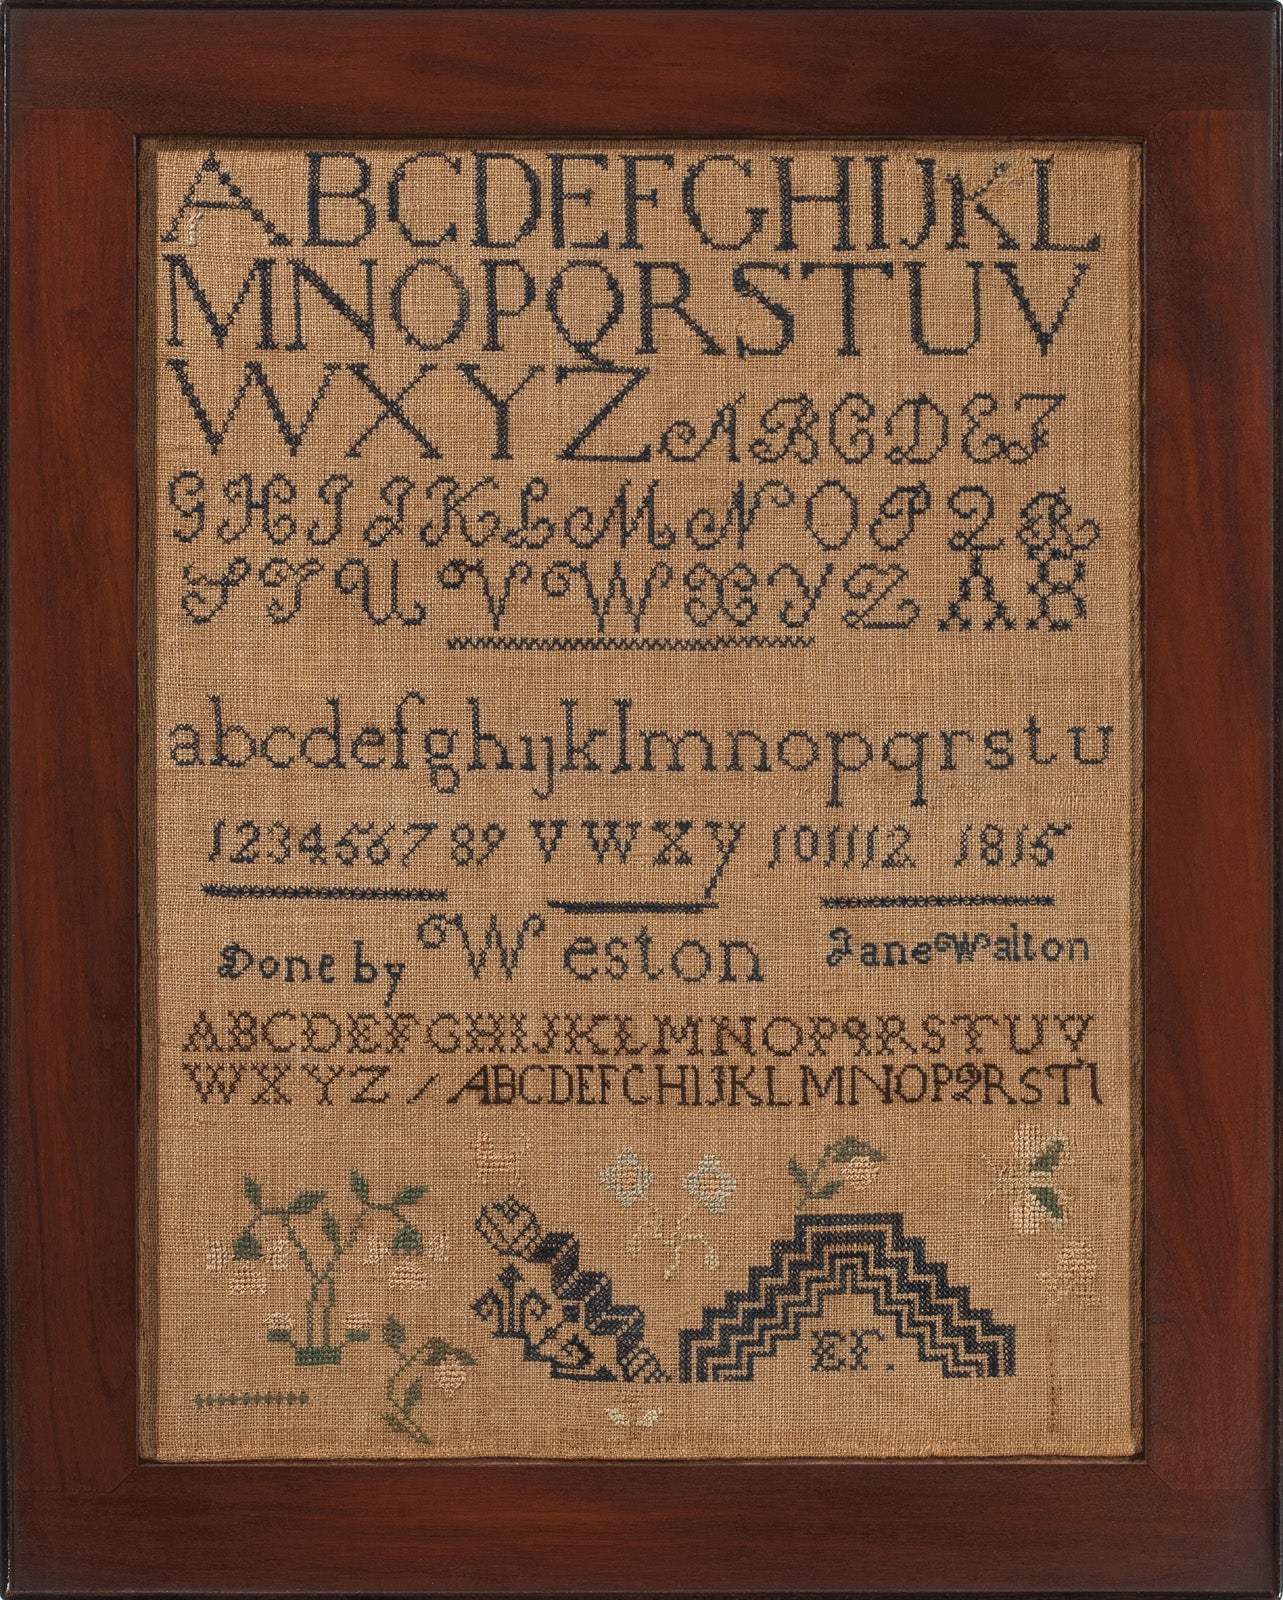 ABCDEFGHIJKL
MNOPQRSTUV
WXYZ ABCDEF
GHIJKLMNOPQR
STUVWXYZ AB
abcdefghijklmnopqrstu
123456789 vwxy 101112 1815
Done by Weston Jane Walton
ABCDEFGHIJKLMNOPQRSTUV
WXYZ / ABCDEFGHIJKLMNOPQRSTI